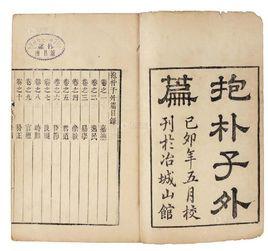 抱朴子外
篇
己卯年五月校
刊於冶城山館
抱朴子外篇目録
卷之一 嘉遯
卷之二 逸民
卷之三 勗學
卷之四 崇教
卷之五 君道
卷之六 臣節
卷之七 良規
卷之八 時難
卷之九 官理
卷之十 務正